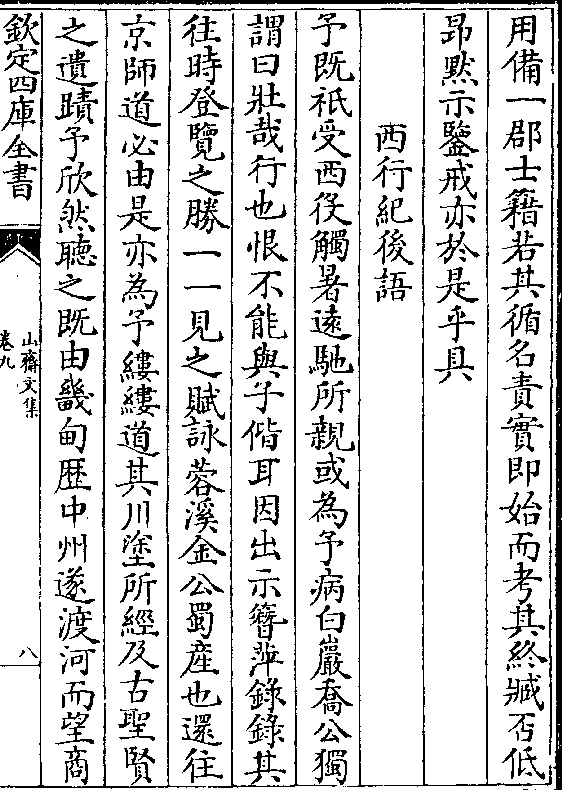 用備一郡士籍若其循名責實即始而考其終臧否低
昂黙示鑒戒亦於是乎具
西行紀後語
予既祇受西役觸暑遠馳所親或為予病白巖喬公獨
謂曰壯哉行也恨不能與子偕耳因出示簪萍錄錄其
往時登覽之勝一一見之賦詠蓉溪金公蜀産也還往
京師道必由是亦為予縷縷道其川塗所經及古聖賢
之遺蹟予欣然聽之既由畿甸歴中州遂渡河而望商
欽定四庫全書
山齋文集
卷九
八